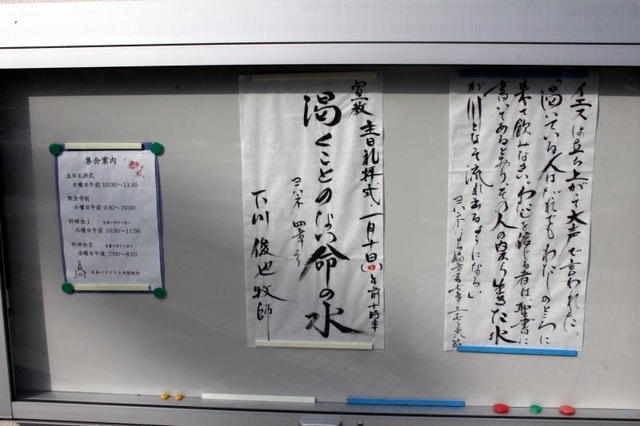 イエスは立ち上がって大声で言われた。
「渇いている人はだれでも、わたしのところに
来て飲みなさい。わたしを信じる者は、聖書に
書いてあるとおり、その人の内から生きた水
が川となって流れ出るようになる。」
宣教 主日礼拝式 一月十日(日)午前十時半
渇くことのない命の水
ヨハネ 四章
下川 俊也 牧師
集会案内
主日礼拝式
日曜日午前 10:30～11:45
教会学校
日曜日午前 9:30～10:00
祈祷会Ⅰ
水曜日午前 10:30～11:50
祈祷会Ⅱ
水曜日午後 7:00～8:10